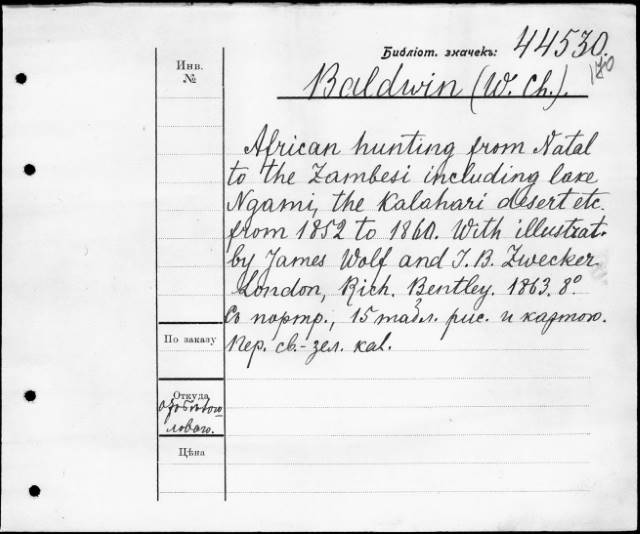 Библіот. значекъ: 44530.
170
Инв.
№
Baldwin (W. Ch.).
African hunting from Natal
to the Zambesi including lake
Ngami, the Kalahari desert etc.
from 1852 to 1860. With illustrat.
by James Wolf and J. B. Zwecker
London, Rich. Bentley. 1863. 8°
Съ портр., 15 табл. рис. и картою.
Пер. св.-зел. kal.
По заказу
Откуда
Цѣна